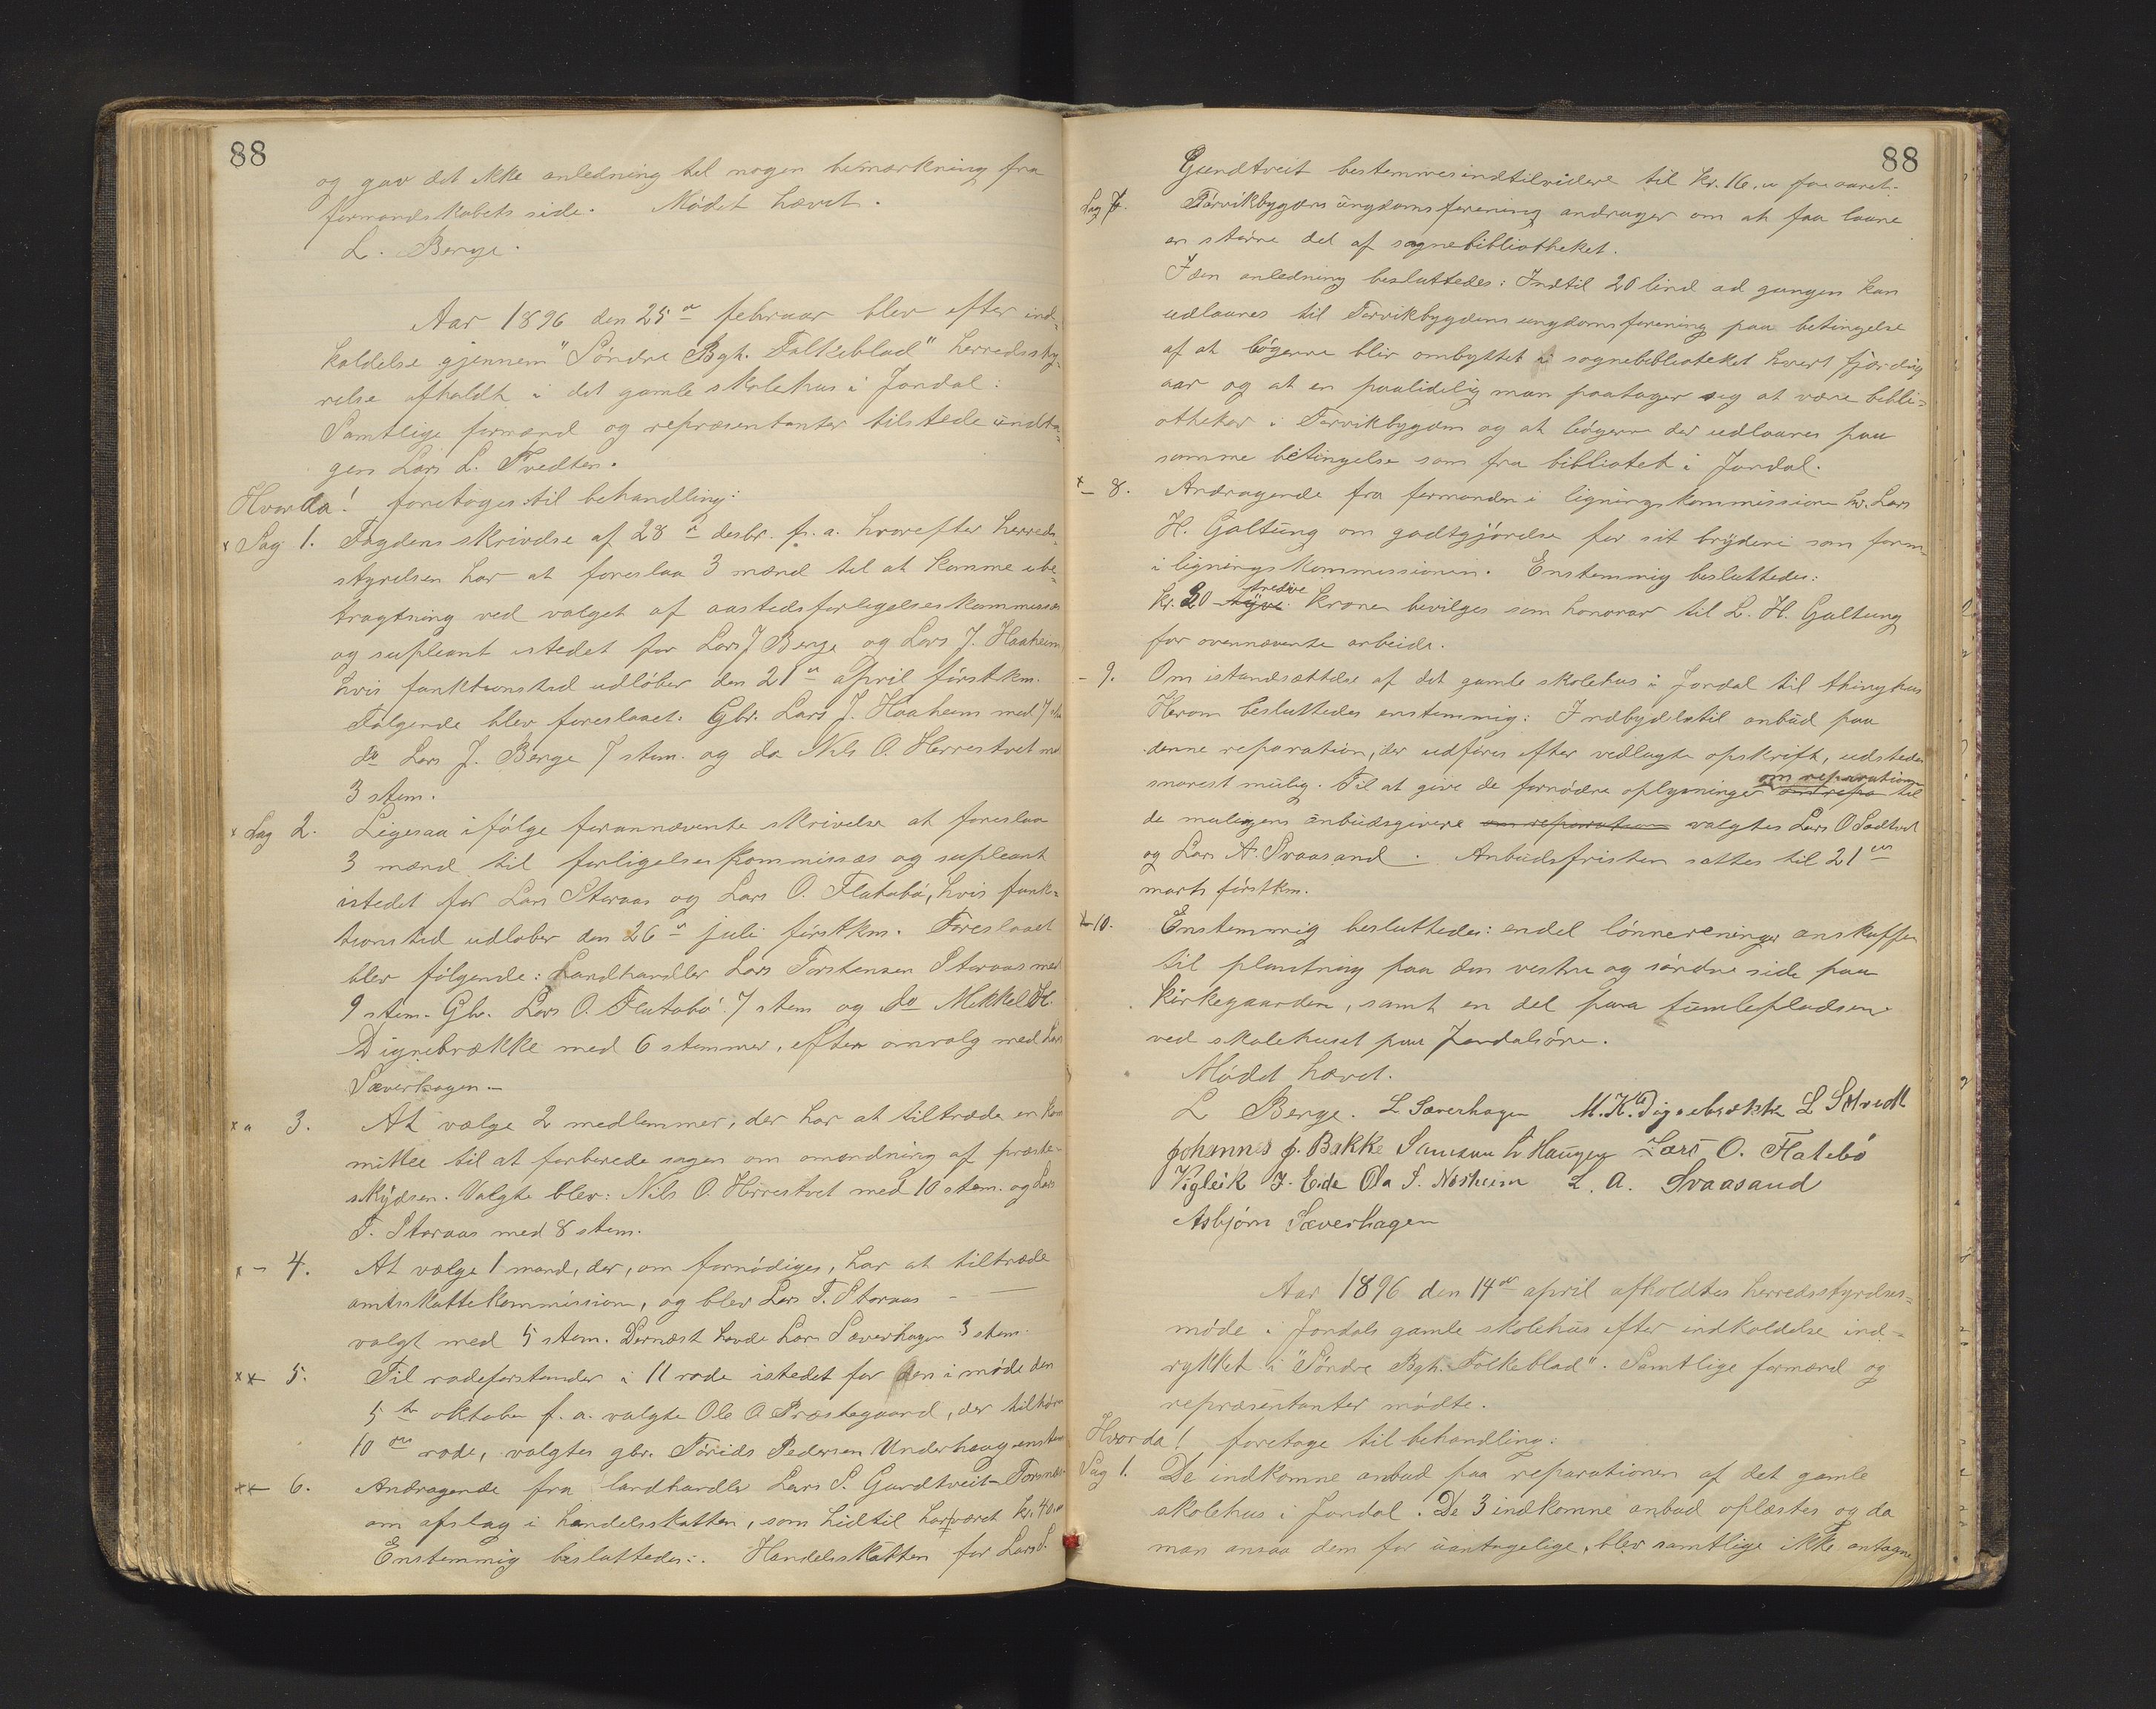 88
og gav det ikke anledning til nogen bemærkning fra
formandskabets side. Mödet hævet.
L. Berge.
Aar 1896 den 25de februar blev efter ind-
kaldelse gjennem "Söndre Bgh. Folkeblad" herredssty-
relse afholdt i det gamle skolehus i Jondal:
Samtlige formænd og repræsentanter tilstede undta-
gen Lars L. Tvedten.
Hvorda! foretoges til behandling:
x Sag 1. Fogdens skrivelse af 28de desbr. f. a. hvorefter herreds-
styrelsen har at foreslaa 3 mænd til at komme i be-
tragtning ved valget af aastedsforligelseskommissær
og supleant istedet for Lars J Berge og Lars J. Haaheim
hvis funktionstid udlöber den 21de april förstkm.
Fölgende blev foreslaaet: Gbr. Lars J. Haaheim med 7 stm
do Lars J. Berge 7 stem. og do Nils O. Herrestvet med
3 stem.
x Sag 2. Ligesaa ifölge forannævnte skrivelse at foreslaa
3 mænd til forligelseskommissær og supleant
istedet for Lars Storaas og Lars O. Flatabö, hvis funk-
tionstid udlöber den 26de juli förstkm. Foreslaaet
blev fölgende: Landhandler Lars Torstensen Storaas med
9 stem. Gbr. Lars O. Flatabö 7 stem og do Mikkel K.
Dignebrække med 6 stemmer, efter omvalg med Lars
Sæverhagen.-
x " 3. At vælge 2 medlemmer, der har at tiltræde en kom
mittee til at forberede sagen om omordning af præste-
skydsen. Valgte blev: Nils O. Herrestvet med 10 stem. og Lars
T. Storaas med 8 stem.
x - 4. At vælge 1 mand, der, om fornödiges, har at tiltræde
amtsskattekommission, og blev Lars T. Storaas - -
valgt med 5 stem. Dernæst havde Lars Sæverhagen 3 stem.
xx- 5. Til rodeforstander i 11 rode istedet for den i möde den
5te oktober f. a. valgte Ole O Præstegaard, der tilhörer
10de rode, valgtes gbr. Pedersen Underhaug enstem
xx- 6. Andragende fra landhandler Lars S. Gundtveit Torsnes
om afslag i handelsskatten, som hidtil har været kr. 40.00
Enstemmig besluttedes: Handelsskatten for Lars S.
88
Gundtveit bestemmes indtilvidere til kr. 16.00 for aaret.
Sag 7. Törvikbygdens ungdomsforening andrager om at faa laane
en större del af sognebibliotheket.
I den anledning besluttedes: Indtil 20 bind ad gangen kan
udlaanes til Törvikbygdens ungdomsforening paa betingelse
af at bögerne blir ombyttet i sognebiblioteket hvert fjerding
aar og at en paalidelig man paatager sig at være bibli-
othekar i Törvikbygden og at bögerne der udlaanes paa
samme betingelse som fra bibliotek i Jondal.
x- 8. Andragende fra formanden i ligningskommissionen hr. Lars
H. Galtung om godtgjörelse for sit bryderi som form-
i ligningskommissionen. Enstemmig besluttedes:
tredive
kr. 30 tyve kroner bevilges som honorar til L. H. Galtung
for ovennævnte arbeide.
- 9. Om istandsættelse af det gamle skolehus i Jondal til thinghus
Herom besluttedes enstemmig: Indbydelse til anbud paa
denne reparation, der udföres efter vedlagte opskrift, udstedes
om reparationen
snarest mulig. Til at give de fornödne oplysninger om repa til
de mulegens anbudsgivere om reparation valgtes Lars O Sædtvet
og Lars A. Svaasand. Anbudsfristen sattes til 21de
marts förstkm.
x-10. Enstemmig besluttedes: endel lönnereninger anskaffes
til plantning paa den vestre og söndre side paa
kirkegaarden, samt en del paa tumlepladsen
ved skolehuset paa Jondalsöre.
Mödet hævet.
L Berge. L Sæverhagen M. K. Dignebrække L S Tvedt
Johannes J. Bakke Samson L Haugen Lars O. Flatebö
Vigleik J. Eide Ola S. Næsheim L. A. Svaasand
Asbjörn Sæverhagen
Aar 1896 den 14de april afholdtes herredsstyrelses-
möde i Jondals gamle skolehus efter indkaldelse ind-
rykket i "Söndre Bgh. Folkeblad". Samtlige formænd og
repræsentanter mödte.
Hvorda! foretoges til behandling:
Sag 1. De indkomne anbud paa reparationen af det gamle
skolehus i Jondal. De 3 indkomne anbud oplæstes og da
man ansaa dem for uantagelige, blev samtlige ikke antagne